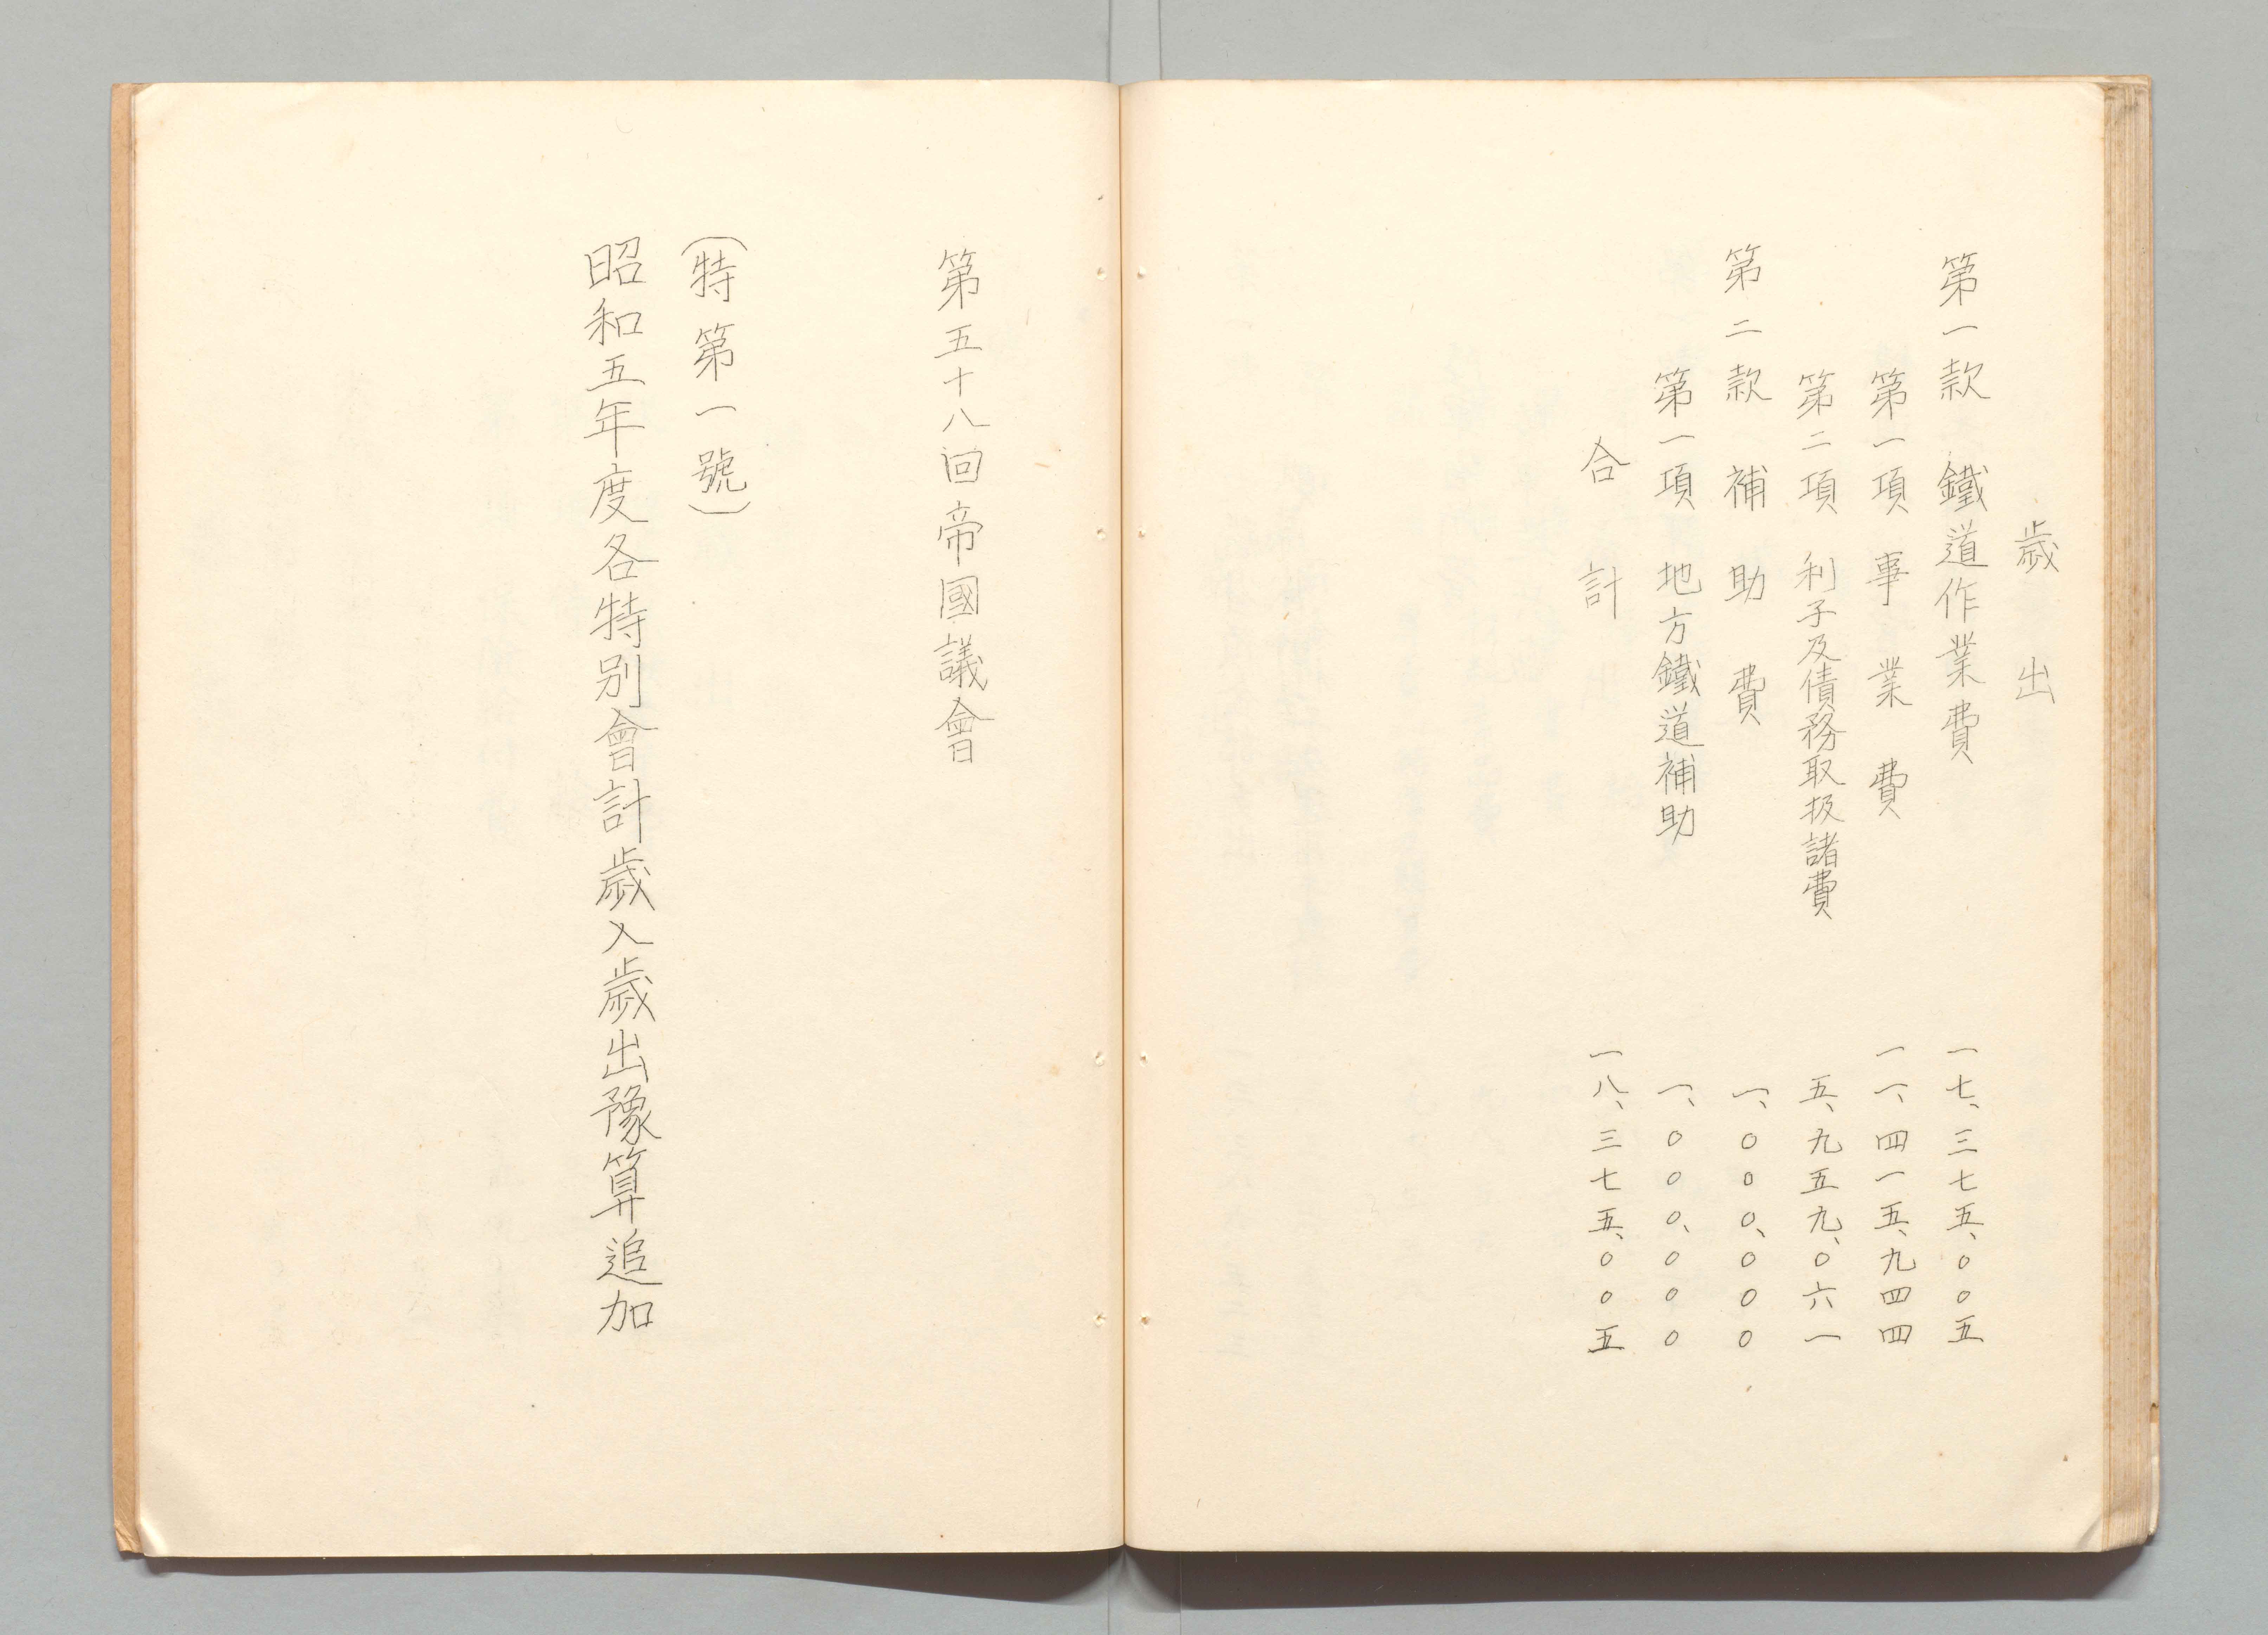 歳出
第一款 鐵道作業費 一七、三七五、〇〇五
第一項 事業費 一一、四一五、九四四
第二項 利子及債務取扱諸費 五、九五九、〇六一
第二款 補助費 一、〇〇〇、〇〇〇
第一項 地方鐵道補助 一、〇〇〇、〇〇〇
合計 一八、三七五、〇〇五
第五十八回帝國議會
(特第一號)
昭和五年度各特別會計歳入歳出豫算追加